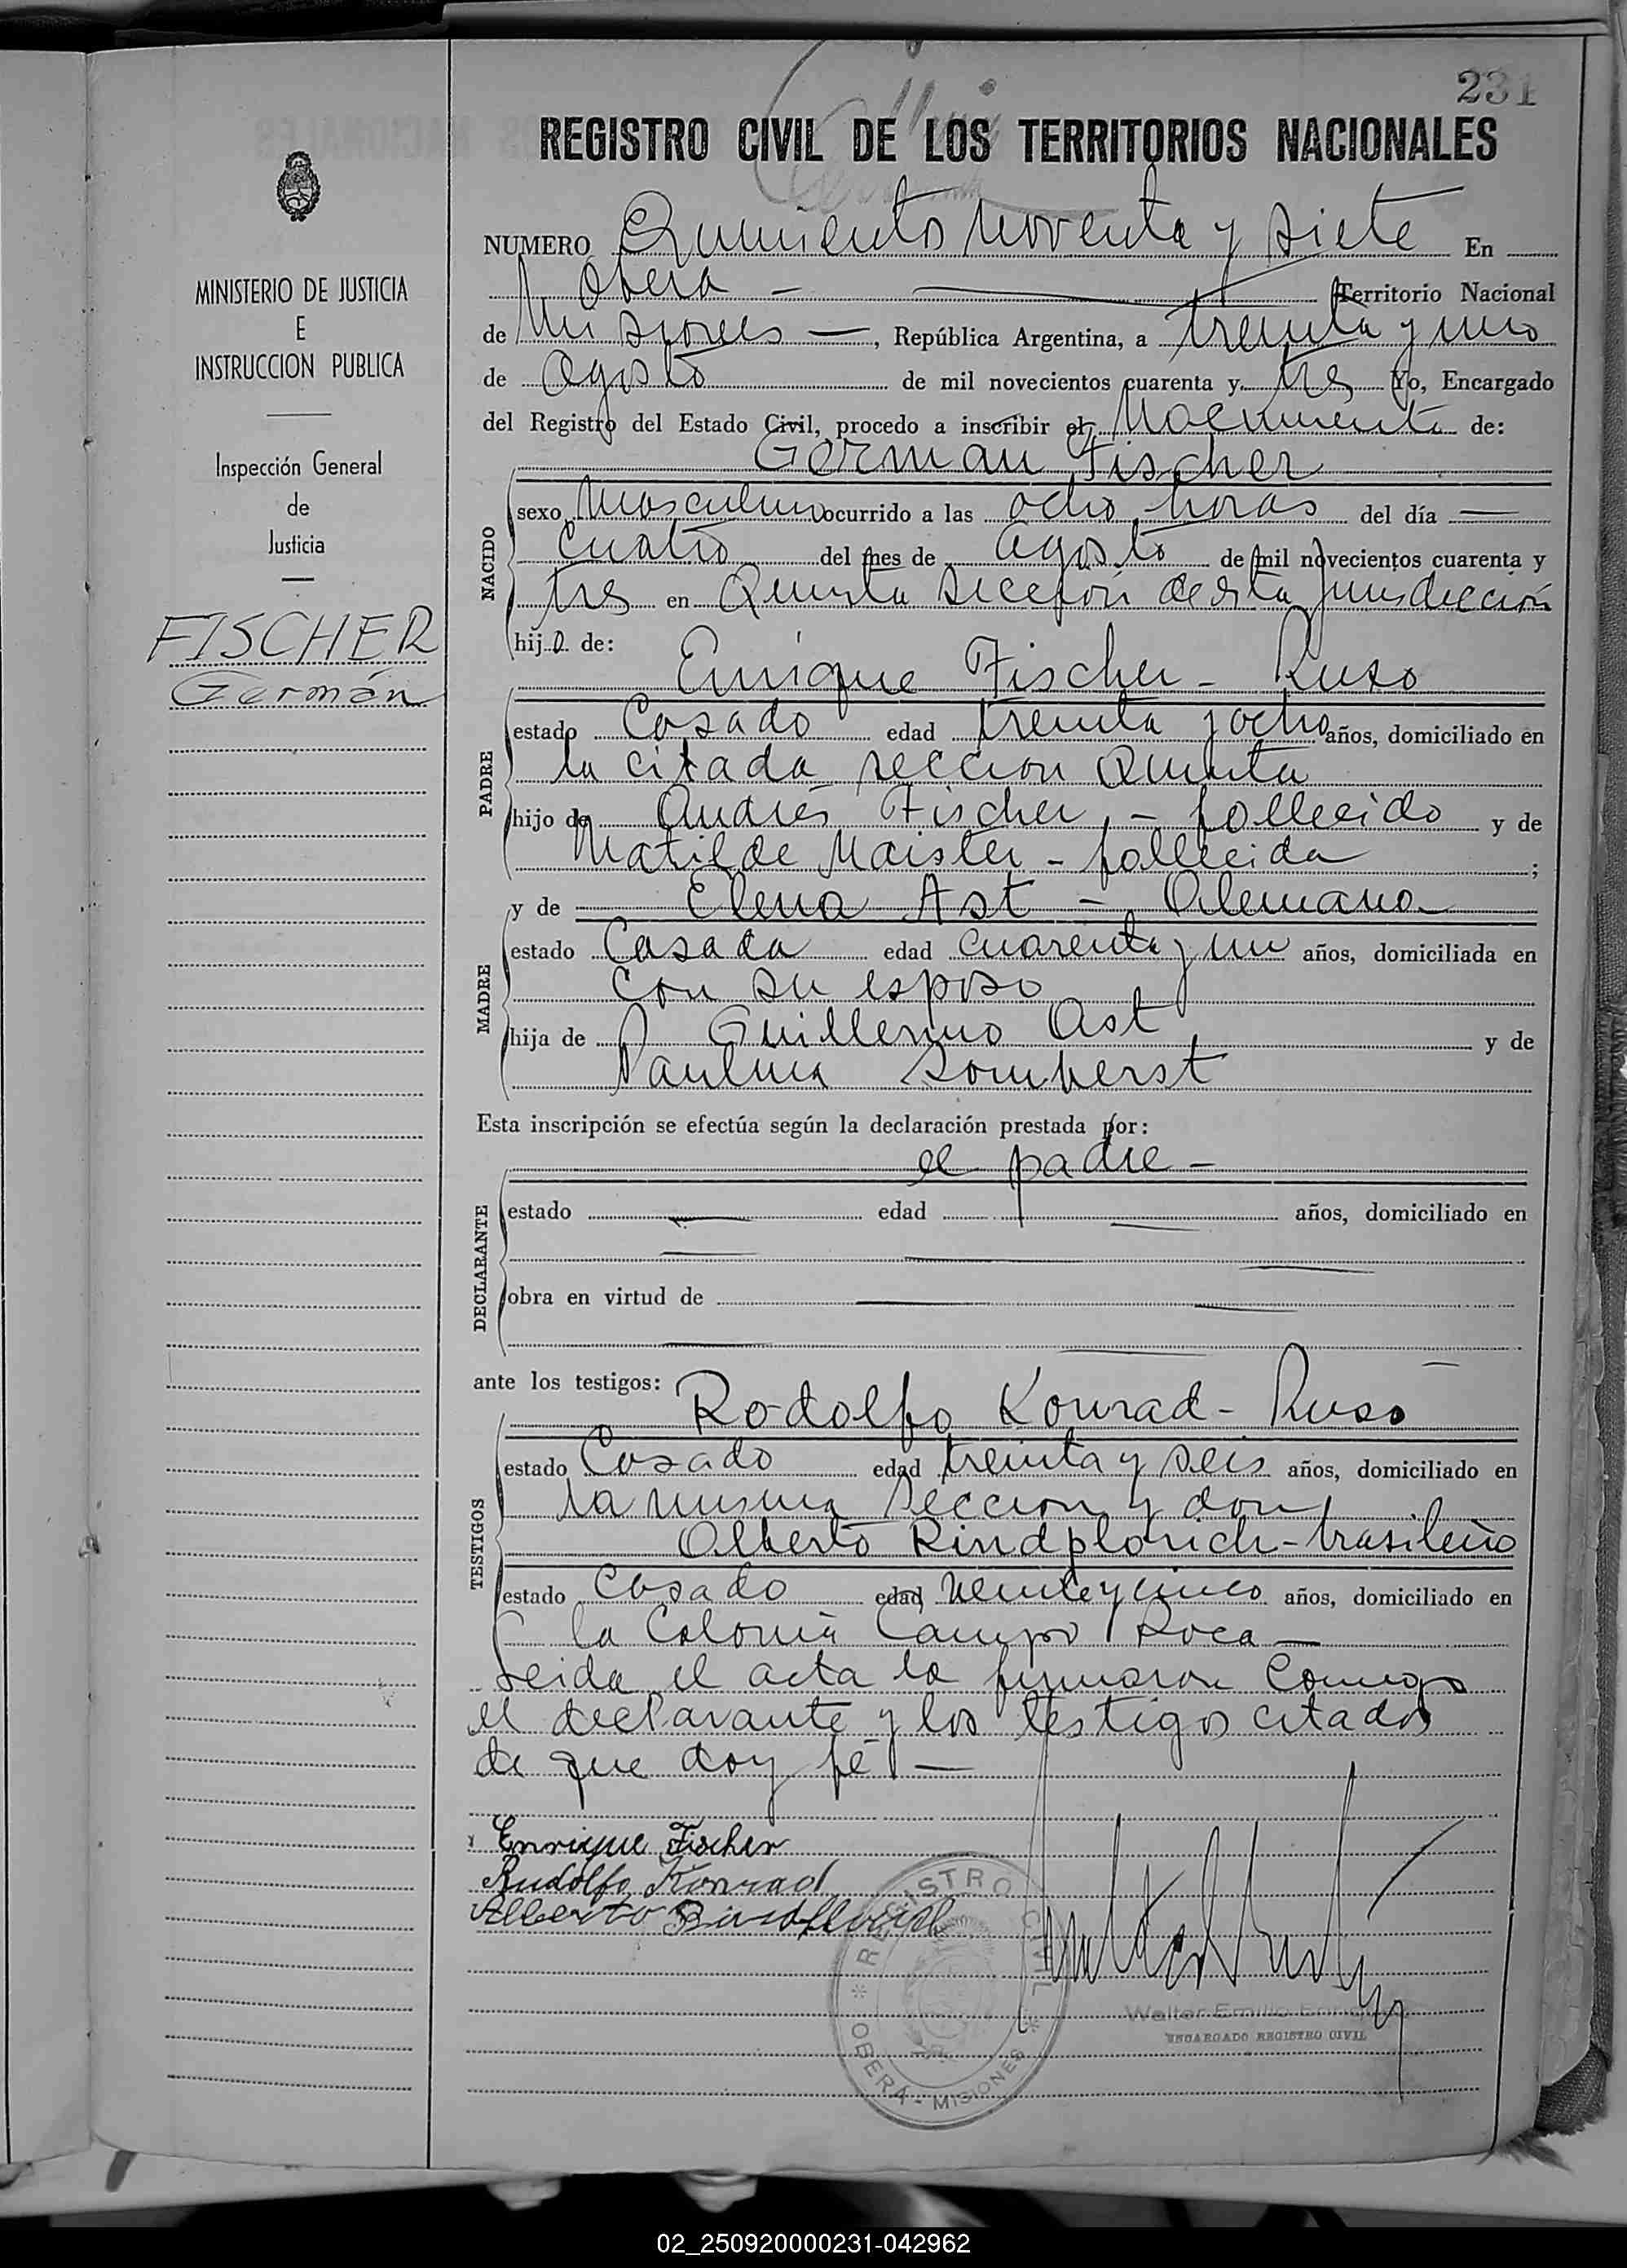 231
REGISTRO CIVIL DE LOS TERRITORIOS NACIONALES
NUMERO Quinientos noventa y siete En
Oberá - Territorio Nacional
de Misiones —, República Argentina, a treinta y uno
de agosto de mil novecientos cuarenta y tres Yo, Encargado
del Registro del Estado Civil, procedo a inscribir el Nacimiento de:
German Fischer
NACIDO
sexo Masculino ocurrido a las ocho horas del día —
cuatro del mes de agosto de mil novecientos cuarenta y
tres en Quinta Sección de esta jurisdicción
hijo de:
Enrique Fischer - Ruso
PADRE
estado Casado edad treinta y ocho años, domiciliado en
la citada seccion Quinta
hijo de Andrés Fischer, - fallecido y de
Matilde Maister - fallecida ;
y de Elena Ast - Alemana
MADRE
estado Casada edad cuarenta y un años, domiciliada en
con su esposo
hija de Guillermo Ast y de
Paulina Somherst
Esta inscripción se efectúa según la declaración prestada por:
el padre -
DECLARANTE
estado — edad — años, domiciliado en
obra en virtud de
ante los testigos:
Rodolfo Konrad - Ruso
TESTIGOS
estado Casado edad treinta y seis años, domiciliado en
la misma Seccion y don
Alberto Rindplorich - brasileño
estado Casado edad veinte y cinco años, domiciliado en
la Colonia Campo Roca —
Leida el acta la firmaron Conmigo
el declarante y los testigos citados
de que doy fé —
Enrique Fischer
Rudolfo Konrad
Alberto
REGISTRO CIVIL
OBERÁ - MISIONES
Walter Emilio
ENCARGADO REGISTRO CIVIL
MINISTERIO DE JUSTICIA
E
INSTRUCCION PUBLICA
Inspección General
de
Justicia
FISCHER
Germán
02_250920000231-042962